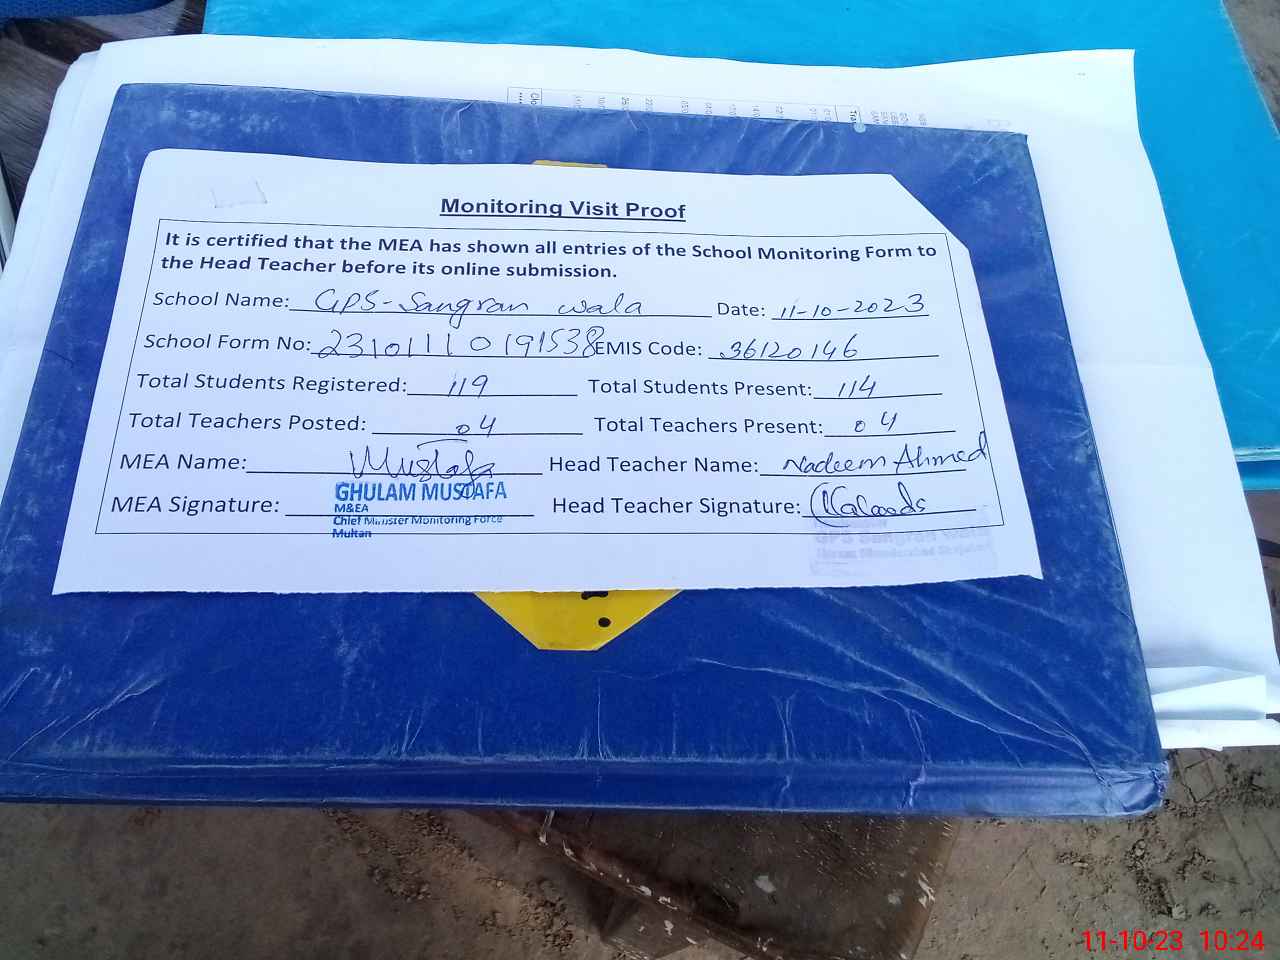 Monitoring Visit Proof
It is certified that the MEA has shown all entries of the School Monitoring Form to
the Head Teacher before its online submission.
School Name: GPS-Sangran wala Date: 11-10-2023
School Form No: 231011110191538 EMIS Code: 36120146
Total Students Registered: 119 Total Students Present: 114
Total Teachers Posted: 04 Total Teachers Present: 04
MEA Name: Mustafa Head Teacher Name: Nadeem Ahmed
MEA Signature: Head Teacher Signature:
GHULAM MUSTAFA
M&EA
Chief Minister Monitoring Force
Multan
GPS Sangran Wala
11-10-23 10:24